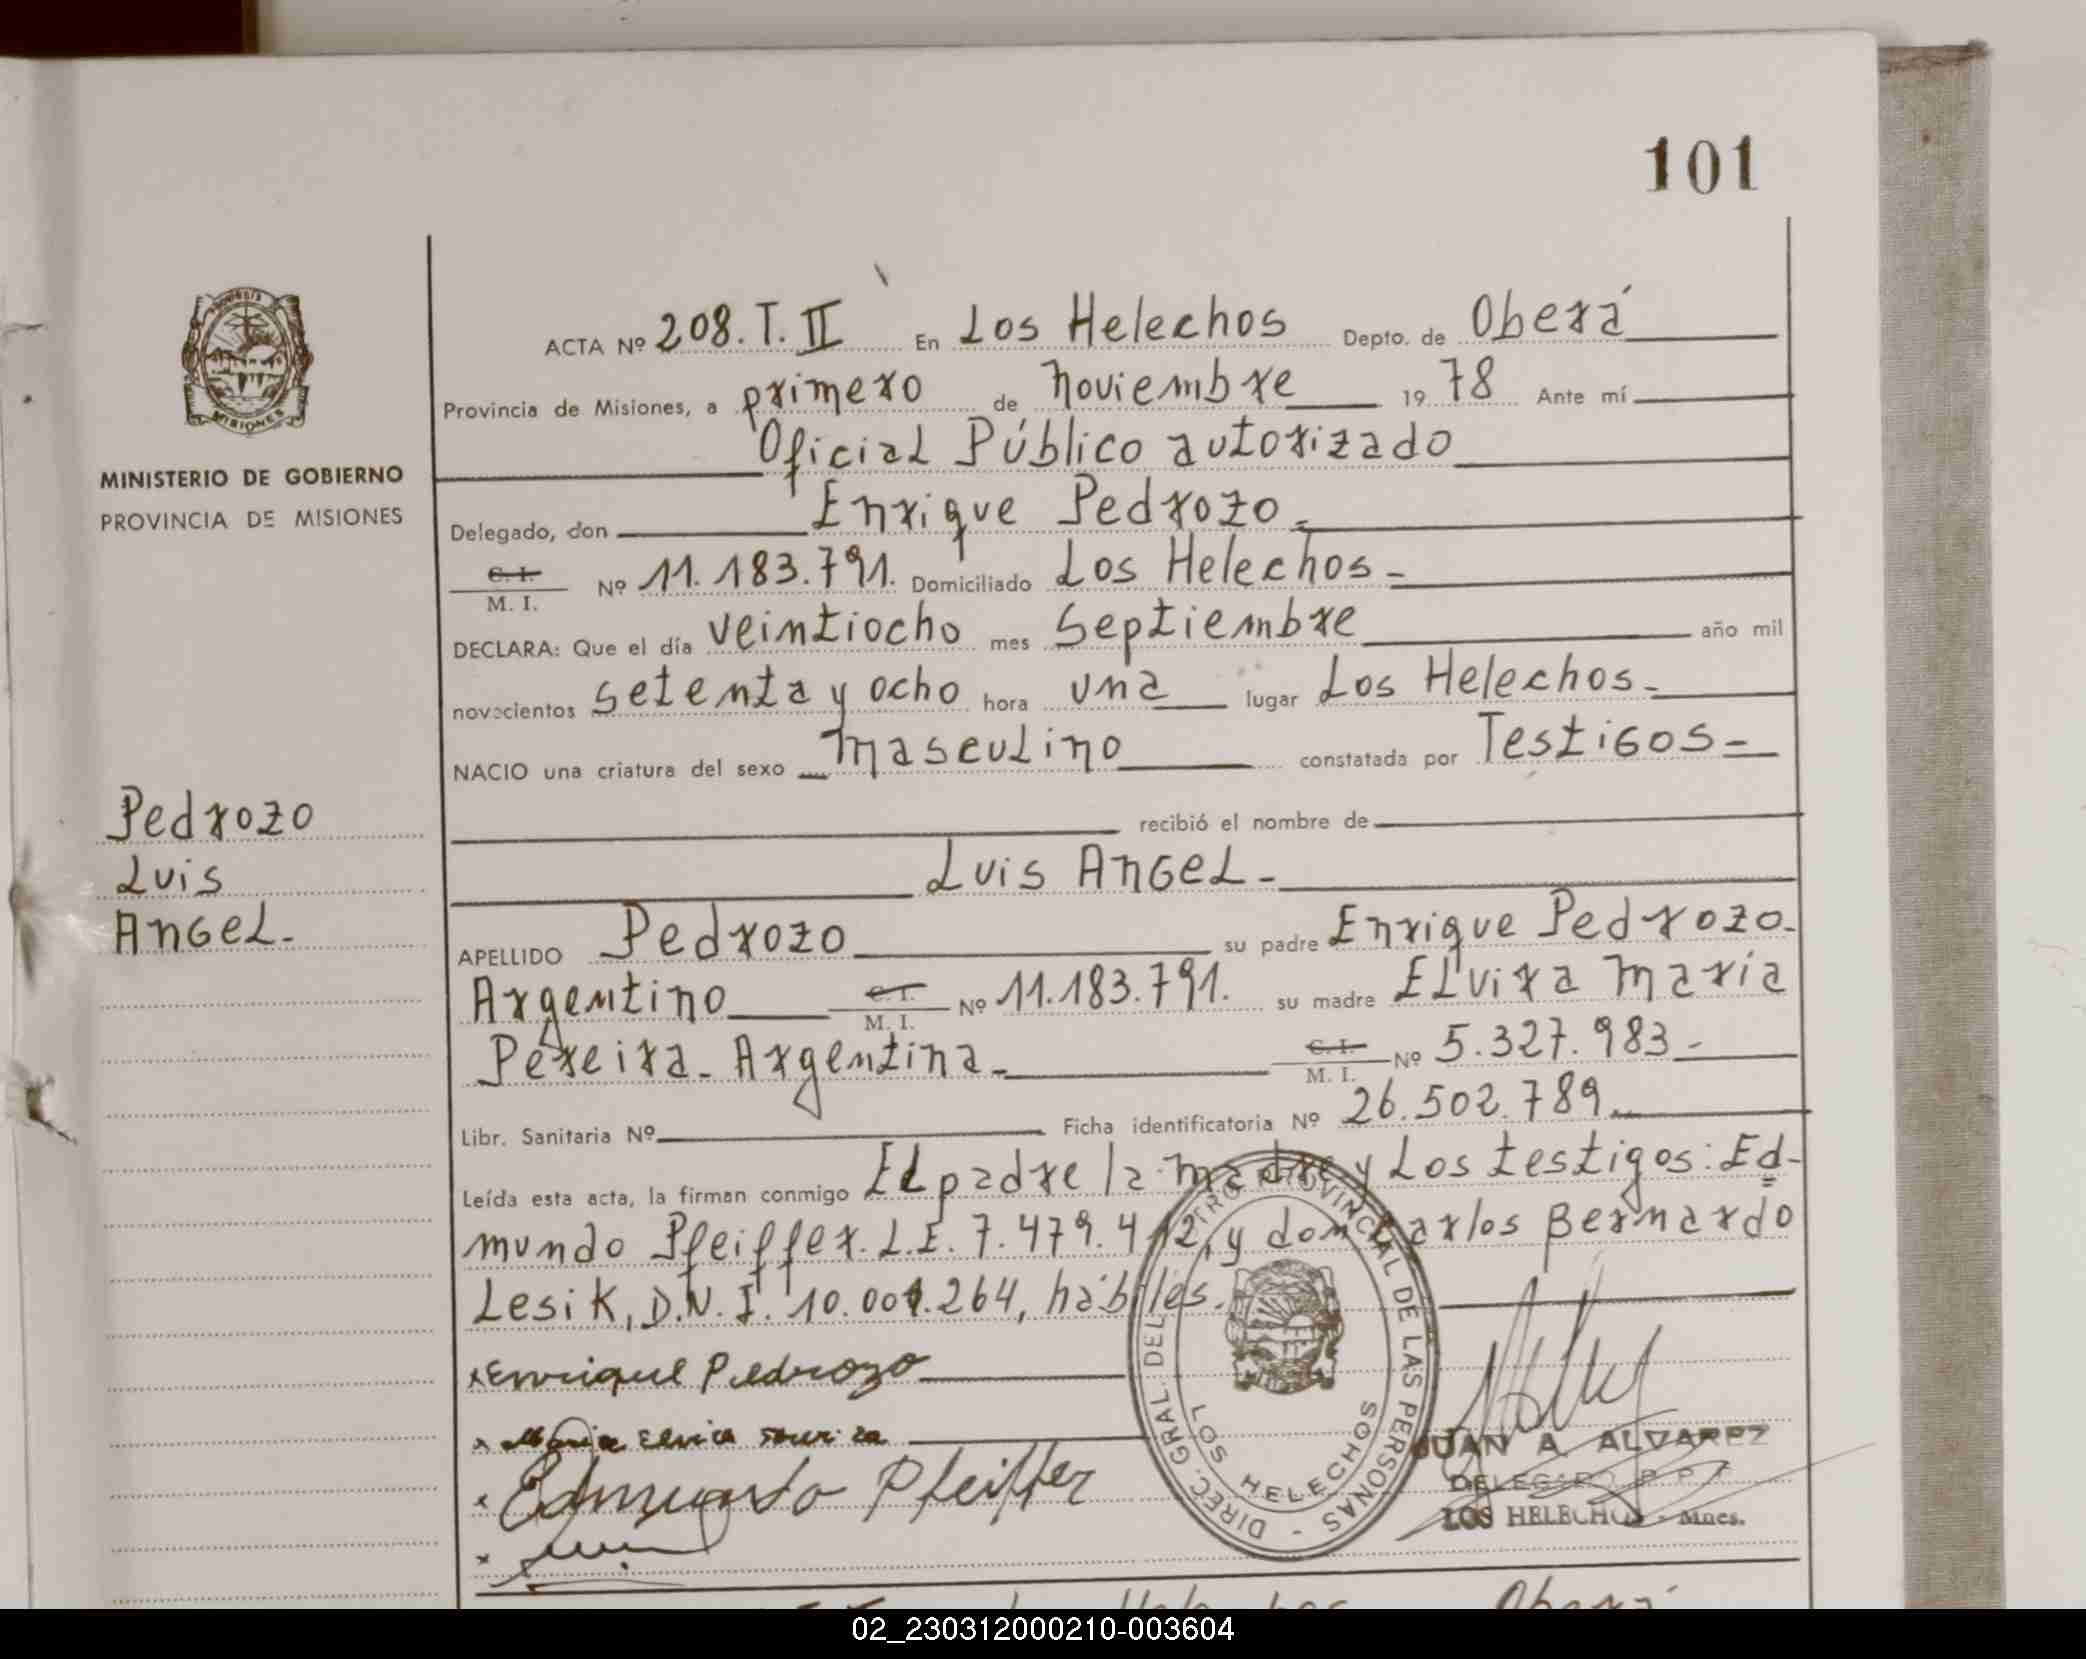 101
MISIONES
MINISTERIO DE GOBIERNO
PROVINCIA DE MISIONES
Pedrozo
Luis
Angel-
ACTA Nº 208. T. II En Los Helechos Depto. de Oberá
Provincia de Misiones, a primero de noviembre 19 78 Ante mí
Oficial Público autorizado
Delegado, don Enrique Pedrozo-
C. I. M. I. Nº 11.183.791. Domiciliado Los Helechos-
DECLARA: Que el día veintiocho mes Septiembre año mil
novecientos setenta y ocho hora una lugar Los Helechos-
NACIO una criatura del sexo masculino constatada por Testigos=
recibió el nombre de
Luis Angel-
APELLIDO Pedrozo su padre Enrique Pedrozo-
Argentino C. I. M. I. Nº 11.183.791. su madre Elvira Maria
Pereira- Argentina- C. I. M. I. Nº 5.327.983-
Libr. Sanitaria Nº Ficha identificatoria Nº 26.502.789
Leída esta acta, la firman conmigo El padre la madre y Los testigos: Ed-
mundo Pfeiffer. L.E. 7.479.412, y don Carlos Bernardo
Lesik, D.N.I. 10.001.264, hábiles.
x Enrique Pedrozo
x Maria Elvira
x Edmundo Pfeiffer
x
DIREC. GRAL. DEL REGISTRO PROVINCIAL DE LAS PERSONAS -
LOS HELECHOS
JUAN A. ALVAREZ
DELEGADO R. P. P.
LOS HELECHOS - Mnes.
Oberá
02_230312000210-003604